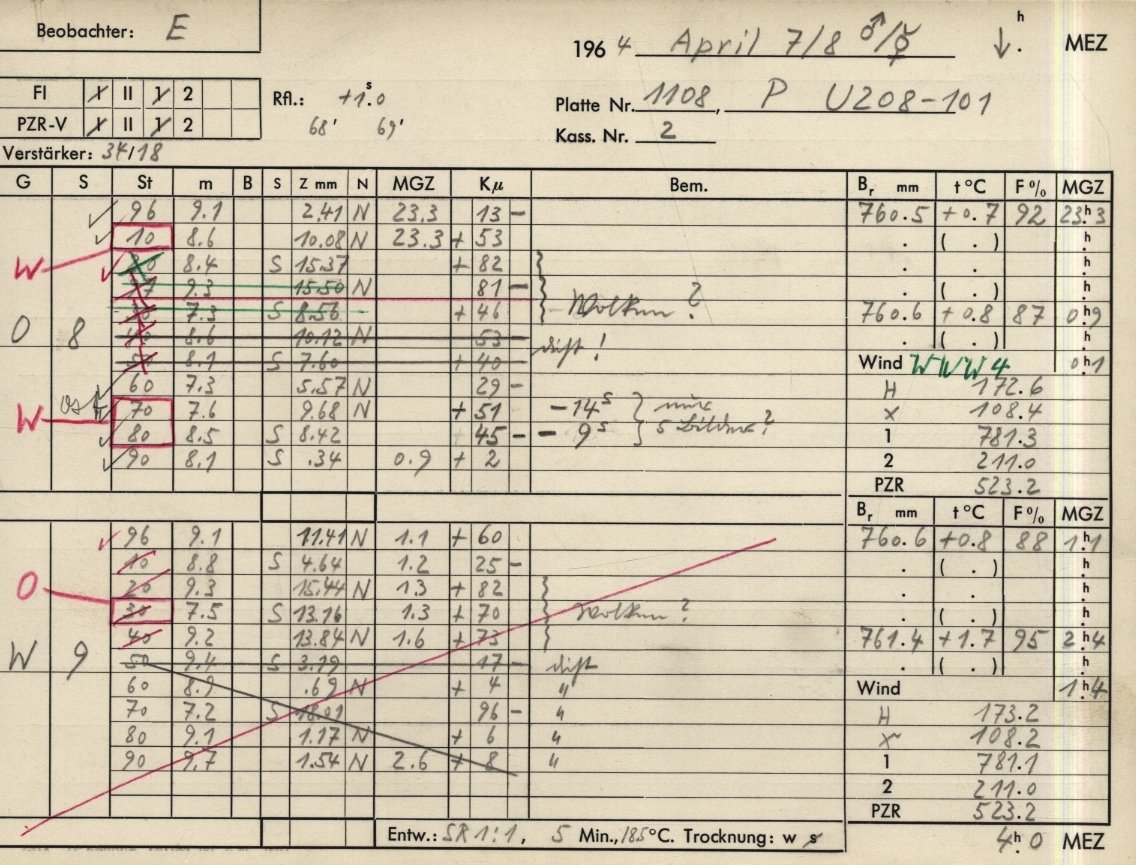 Beobachter: E
196 4 April 7/8 ♂/☿ h . MEZ
FI I II 1 2
PZR-V I II 1 2
Rfl.: +1s.0
68' 69'
Platte Nr. 1108, P U208-101
Kass. Nr. 2
Verstärker: 34/18
G S St m B S Z mm N MGZ Kμ Bem. Br mm t°C F% MGZ
96 9.1 2.41 N 23.3 13 - 760.5 +0.7 92 23h.3
10 8.6 10.08 N 23.3 + 53 . ( . ) h
W 8.4 S 15.37 + 82 . . h
9.3 15.50 N 81 - . ( . ) h
7.3 S 8.56 + 46 Wolken? 760.6 +0.8 87 0h.9
O 8 8.6 10.12 N 53 - dift! . ( . ) h
8.1 S 7.60 + 40 - Wind WNW 4 0h1
60 7.3 5.57 N 29 - H 172.6
W Ost 70 7.6 9.68 N + 51 -14s X 108.4
80 8.5 S 8.42 45 - - 9s 1 781.3
90 8.1 S .34 0.9 + 2 2 211.0
PZR 523.2
Br mm t°C F% MGZ
96 9.1 11.41 N 1.1 + 60 760.6 +0.8 88 1h.1
10 8.8 S 4.64 1.2 25 - . ( . ) h
O 20 9.3 15.44 N 1.3 + 82 . . h
30 7.5 S 13.16 1.3 + 70 Wolken? . ( . ) h
40 9.2 13.84 N 1.6 + 73 761.4 +1.7 95 2h.4
W 9 50 9.4 S 3.19 17 - dift . ( . ) h
60 8.9 .69 N + 4 " Wind 1h.4
70 7.2 S 18.01 96 - " H 173.2
80 9.1 1.17 N + 6 " X 108.2
90 9.7 1.54 N 2.6 + 8 " 1 781.1
2 211.0
PZR 523.2
Entw.: SR 1:1, 5 Min., 18.5°C. Trocknung: w s 4h.0 MEZ